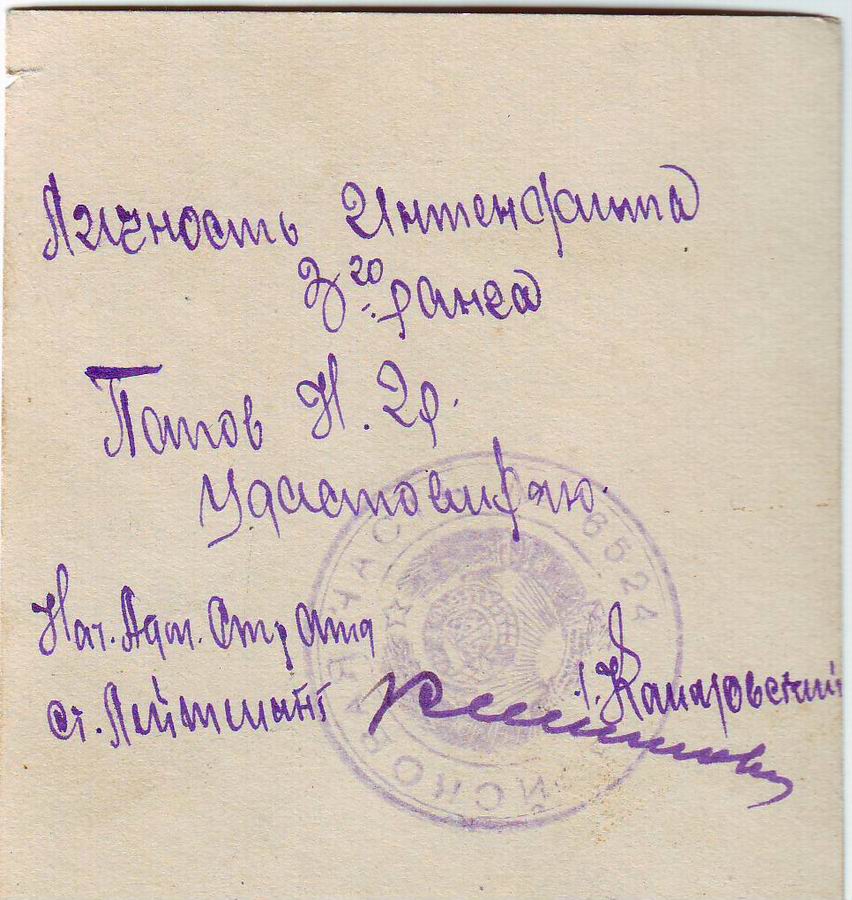 Личность Интенданта
3го ранга
Попов Н. Гр.
Удостоверяю.
Нач. Адм. Стр Отд
ст. Лейтенант
ЙСКОВАЯ ЧАС 6524